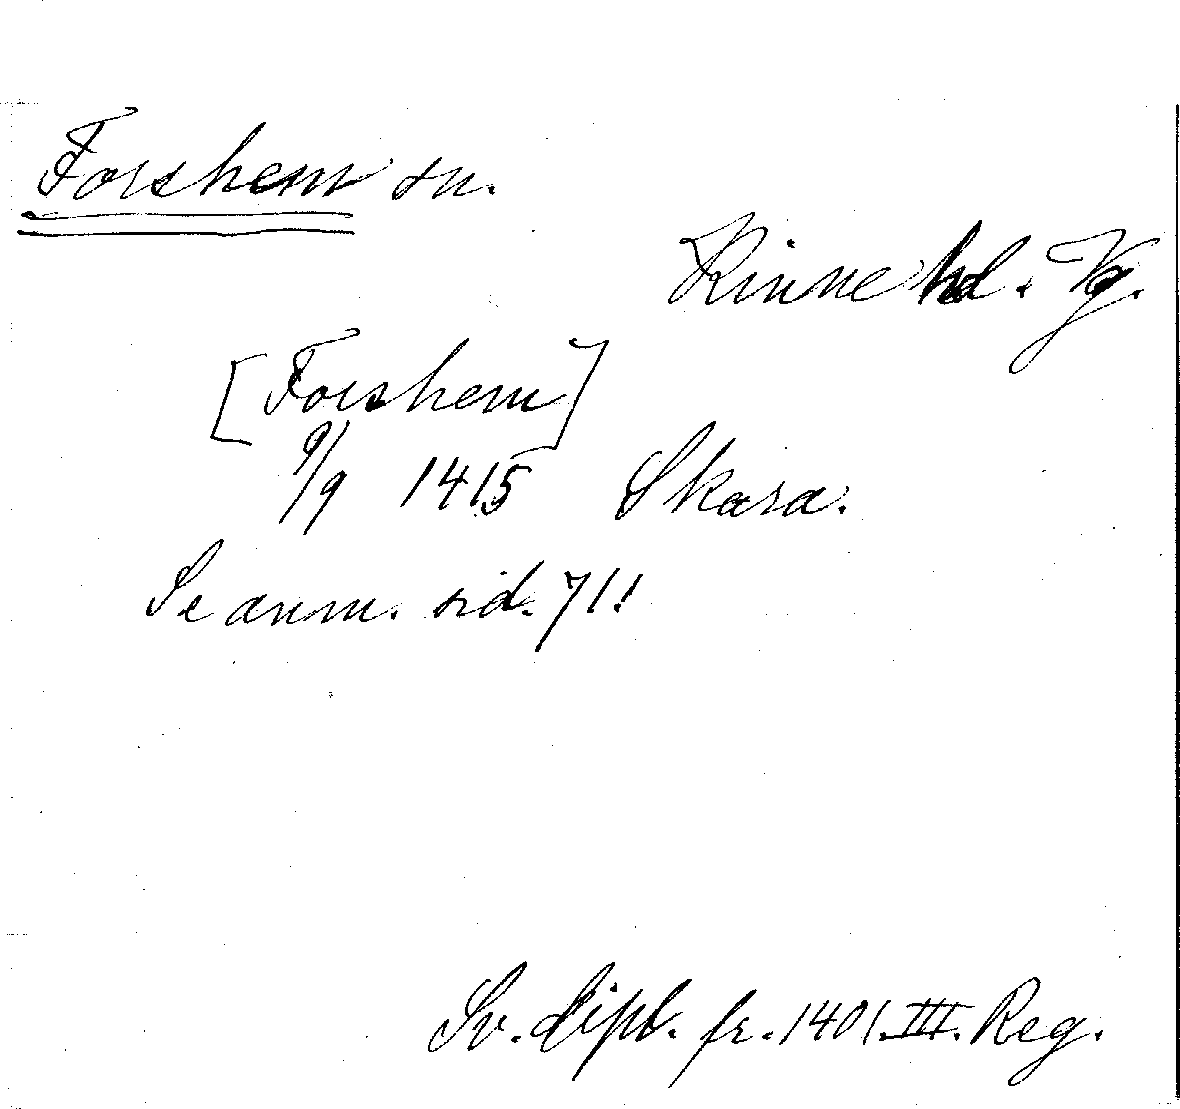 Forshem sn.
Kinne hd. Vg.
[Forshem]
9/9 1415 Skara.
Se anm. sid. 71!
Sv. dipl. fr. 1401. III. Reg.